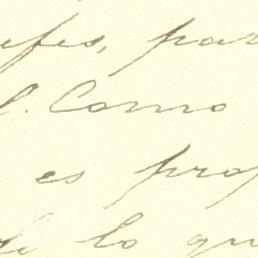 efes, par
l. Como
es prop
de lo que